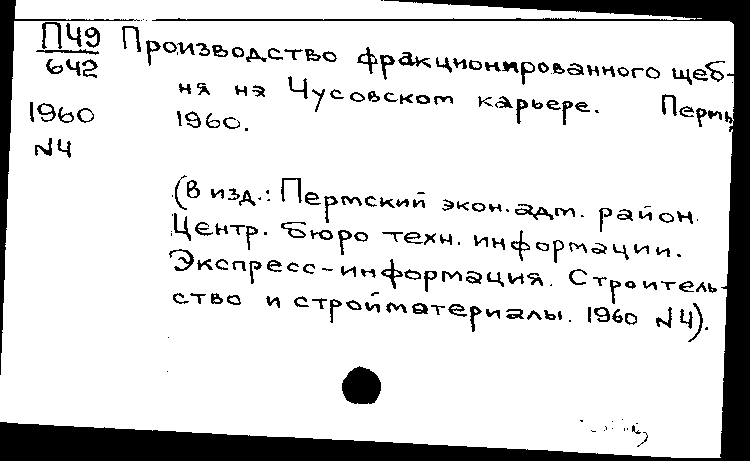 П49
642
1960
N4
Производство фракционированного щеб-
ня на Чусовском карьере. Пермь,
1960.
(В изд.: Пермский экон. адм. район.
Центр. бюро техн. информации.
Экспресс-информация. Строитель-
ство и стройматериалы. 1960 N4).